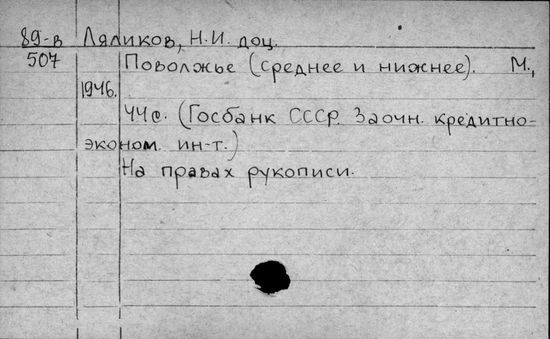 89-в Ляликов, Н.И. доц.
507 Поволжье (среднее и нижнее). М.,
1946.
44с. (Госбанк СССР. Заочн. кредитно-
эконом. ин-т.)
На правах рукописи.